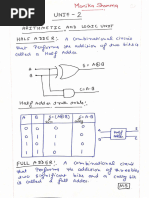 Monika Sharma
UNIT - 2
ARITHMETIC AND LOGIC UNIT
HALF ADDER: A combinational circuit
that performs the addition of two bits is
called a half adder.
A
B
S = A⊕B
C = AB
Half Adder truth table:
A B S=(A⊕B) C=(AB)
0 0 0 0
0 1 1 0
1 0 1 0
1 1 0 1
FULL ADDER: A combinational circuit
that performs the addition of three bits
two significant bits and a carry bit
is called a full adder.